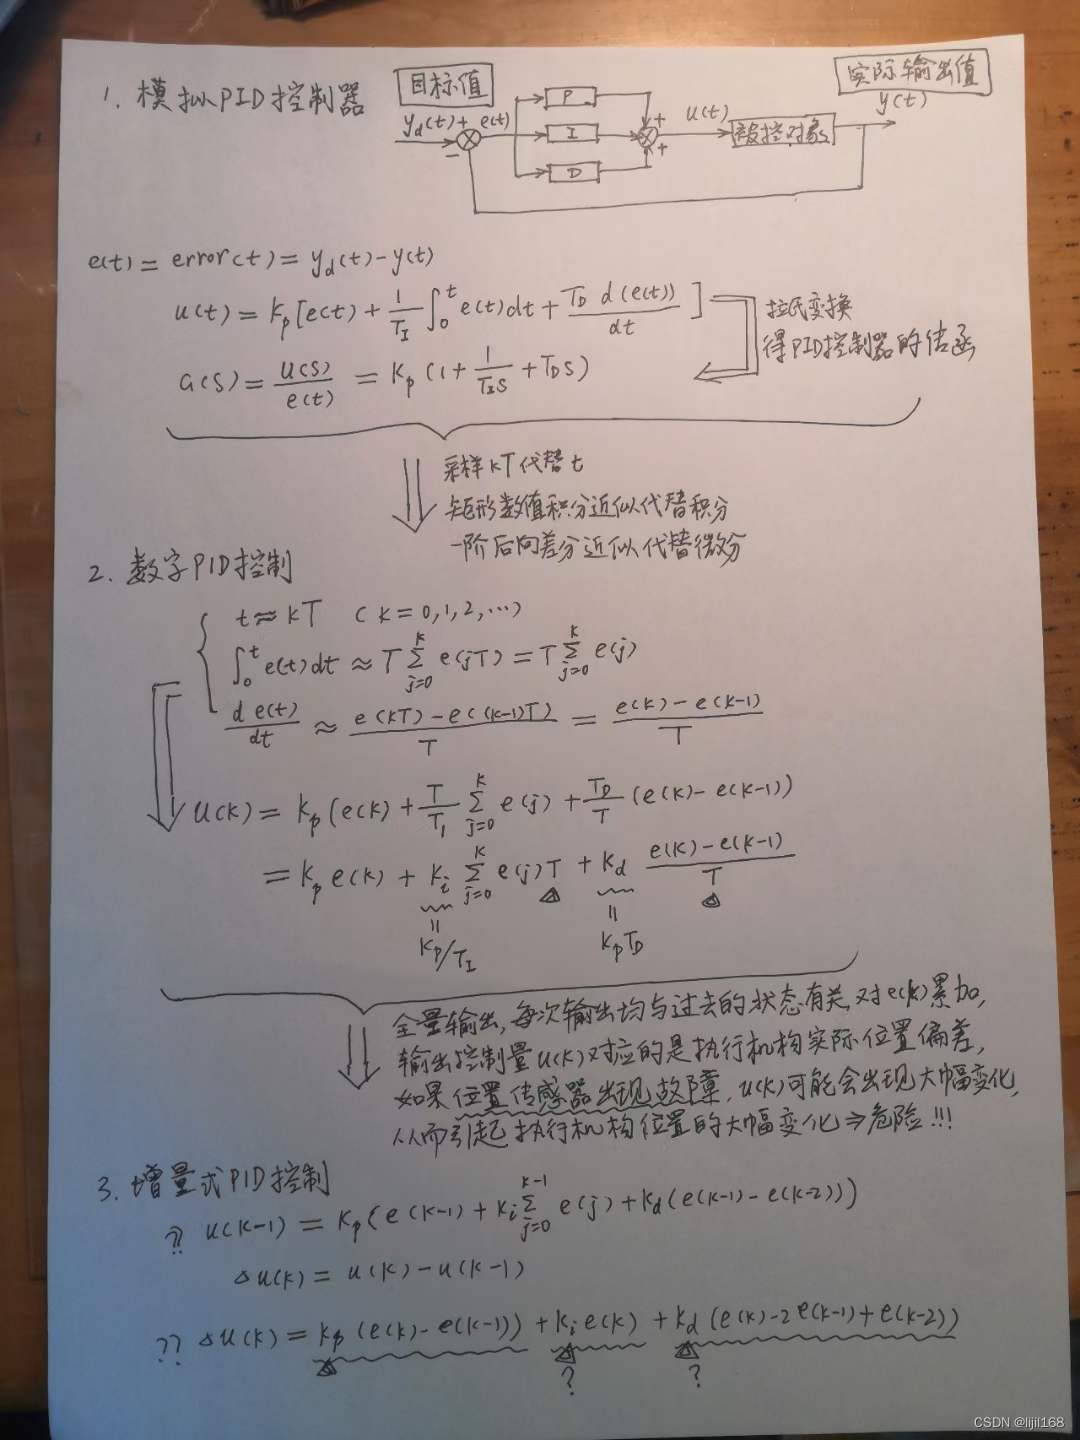 1. 模拟PID控制器
目标值
实际输出值
yd(t) + e(t)
-
P
I
D
+
+
u(t)
被控对象
y(t)
e(t) = error(t) = yd(t) - y(t)
u(t) = Kp[e(t) + 1/TI ∫₀ᵗ e(t)dt + TD d(e(t))/dt]
拉氏变换
得PID控制器的传函
G(S) = U(S)/e(t) = Kp (1 + 1/TIS + TDS)
采样KT代替t
矩形数值积分近似代替积分
一阶后向差分近似代替微分
2. 数字PID控制
t ≈ KT (K = 0,1,2,…)
∫₀ᵗ e(t)dt ≈ T Σ(j=0→K) e(jT) = T Σ(j=0→K) e(j)
d e(t)/dt ≈ (e(KT) - e((K-1)T))/T = (e(K) - e(K-1))/T
U(K) = Kp (e(K) + T/TI Σ(j=0→K) e(j) + TD/T (e(K) - e(K-1))
= Kp e(K) + Ki Σ(j=0→K) e(j)T + Kd (e(K) - e(K-1))/T
= Kp/TI
= KpTD
全量输出,每次输出均与过去的状态有关,对e(k)累加,
输出控制量u(k)对应的是执行机构实际位置偏差,
如果位置传感器出现故障,u(k)可能会出现大幅变化,
从而引起执行机构位置的大幅变化⇒危险!!!
3. 增量式PID控制
?? u(K-1) = Kp(e(K-1) + Ki Σ(j=0→K-1) e(j) + Kd(e(K-1) - e(K-2)))
△u(K) = u(K) - u(K-1)
?? △u(K) = Kp (e(K) - e(K-1)) + Ki e(K) + Kd (e(K) - 2e(K-1) + e(K-2))
? ?
CSDN @lijil168